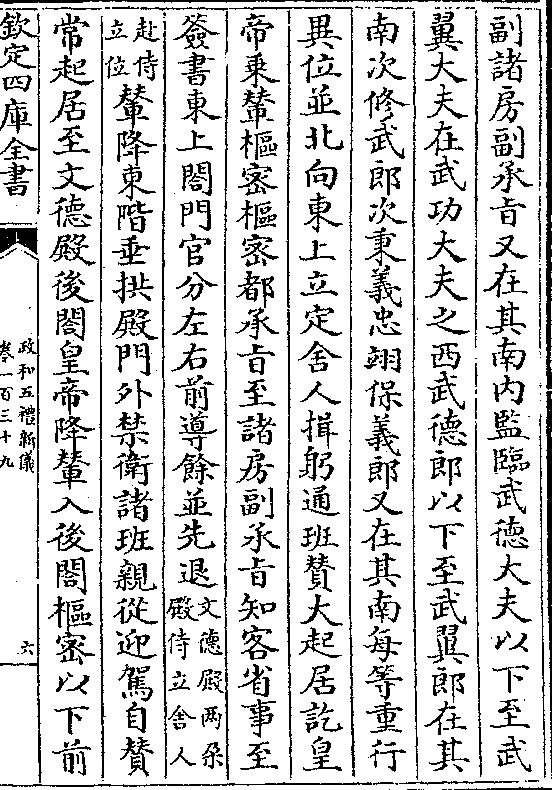 副諸房副承旨又在其南内監臨武德大夫以下至武
翼大夫在武功大夫之西武德郎以下至武翼郎在其
南次修武郎次秉義忠翊保義郎又在其南每等重行
異位並北向東上立定舍人揖躬通班贊大起居訖皇
帝乗輦樞密樞密都承旨至諸房副承旨知客省事至
簽書東上閤門官分左右前導餘並先退文德殿兩朶
殿侍立舍人
赴侍
立位輦降東階垂拱殿門外禁衛諸班親從迎駕自贊
常起居至文德殿後閤皇帝降輦入後閤樞密以下前
欽定四庫全書
政和五禮新儀
卷一百三十九
六